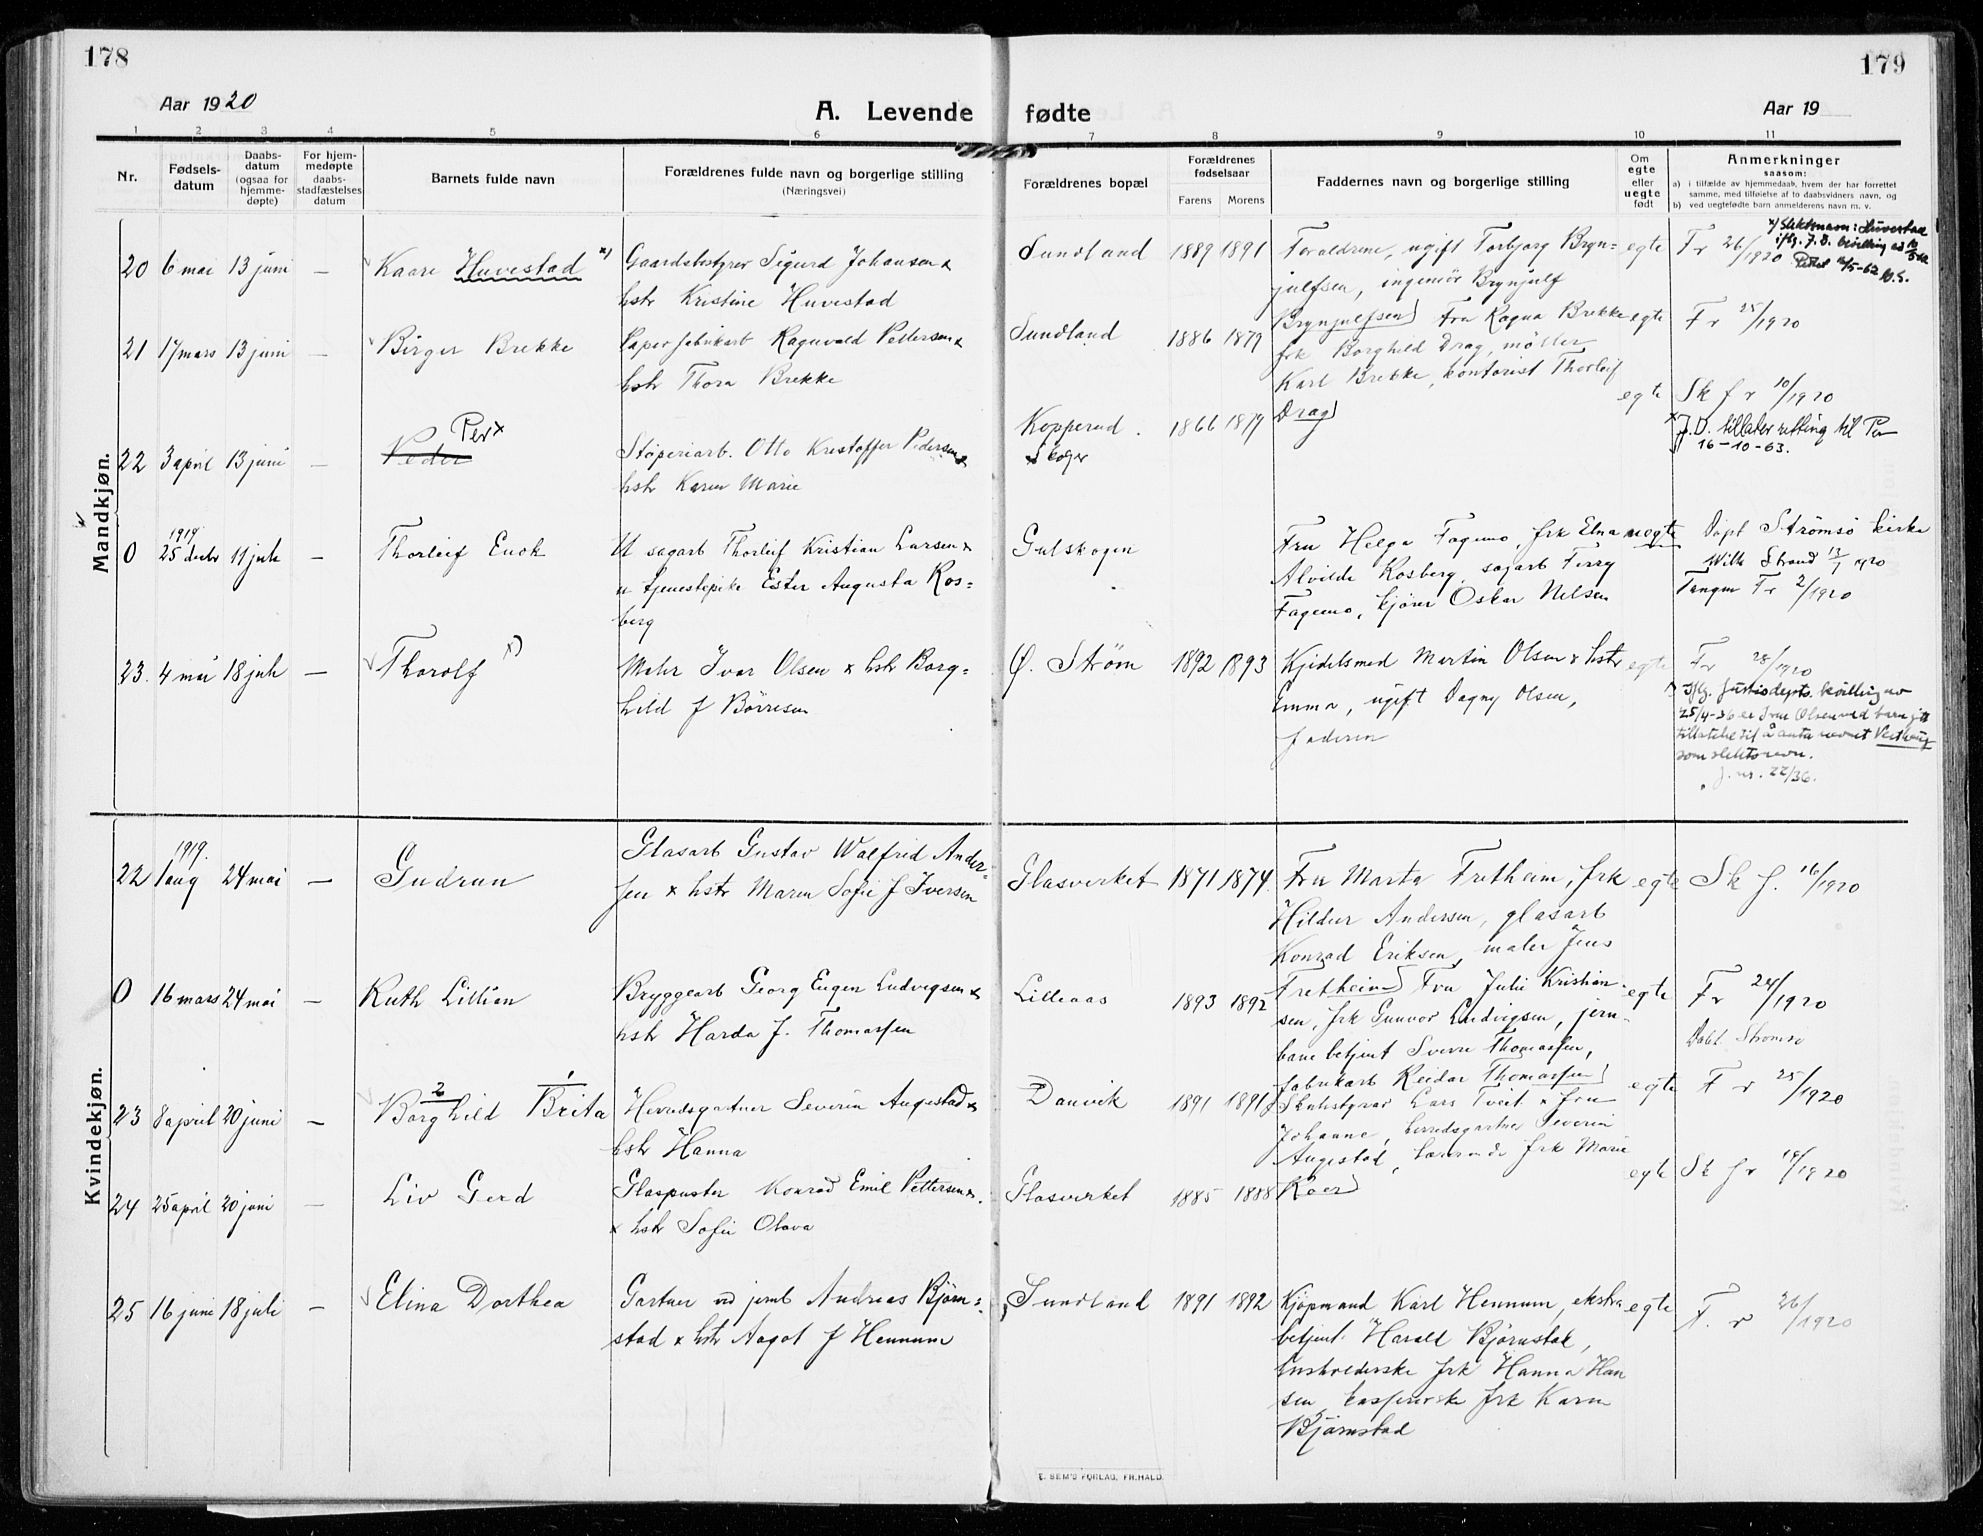 178
179
Aar 1920
A. Levende fødte
Aar 19
1 2 3 4 5 6 7 8 9 10 11
Nr.
Fødsels-
datum
Daabs-
datum
(ogsaa for
hjemme-
døpte)
For hjem-
medøpte
daabs-
stadfæstelses
datum
Barnets fulde navn
Forældrenes fulde navn og borgerlige stilling
(Næringsvei)
Forældrenes bopæl
Forældrenes
fødselsaar
Farens Morens
Faddernes navn og borgerlige stilling
Om
egte
eller
uegte
født
Anmerkninger
saasom:
a) i tilfælde av hjemmedaab, hvem der har forrettet
samme, med tilføielse af to daabsvidners navn, og
b) ved uegtefødte barn anmelderens navn m. v.
Mandkjøn.
20 6 mai 13 juni — Kaare Huvestad x)
Gaardsbestyrer Sigurd Johansen &
hstr Kristine Huvestad
Sundland 1889 1891
Forældrene, ugift Torbjørg Bryn-
julfsen, ingeniør Brynjulf
Brynjulfsen
egte
Fr 26/1920
x) Slektsnavn: Huvestad
21 17 mars 13 juni — Birger Brekke
Papirfabrikarb Ragnvald Pettersen &
hstr Thora Brekke
Sundland 1886 1879
Fru Ragna Brekke
frk Borghild Drag, møller
Karl Brekke, kontorist Thorleif
Drag
egte
Fr 25/1920
22 3 april 13 juni — Peder Per x
Støperiarb. Otto Kristoffer Pedersen &
hstr Karen Marie
Kopperud.
Skoger
1866 1879
egte
Sk f r 10/1920
x J.D. tillater retting til Per
16-10-63.
0 1919 25 decbr 11 juli — Thorleif Enok
U sagarb Thorleif Kristian Larsen &
u tjenestepike Ester Augusta Ros-
berg
Gulskogen
Fru Helga Fagemo, frk Elna
Alvilde Rosberg, sagarb Ferry
Fagemo, kjører Oskar Nelsen
uegte
Døpt Strømsø kirke
Wilh Strand 13/1 1920
Tangen Fr 2/1920
23. 4 mai 18 juli — Thorolf x)
Maler Ivar Olsen & hstr Borg-
hild f Børresen
Ø. Strøm 1892 1893
Kjedelsmed Martin Olsen & hstr
Emma, ugift Dagny Olsen,
faderen
egte
Fr 28/1920
x) Iflg. Justisdepts bevilling av
25/4-36 er Ivar Olsen med barn gitt
tillatelse til å anta navnet
som slektsnavn.
J. nr. 22/36.
Kvindekjøn.
22 1919. 1 aug 24 mai — Gudrun
Glasarb Gustav Walfrid Ander-
sen & hstr Maren Sofie f Iversen
Glasverket 1871 1874.
Fru Marta Fretheim, frk
Hildur Andersen, glasarb
Konrad Eriksen, maler Jens
Fretheim
egte
Sk f. 16/1920
0 16 mars 24 mai — Ruth Lillian
Bryggearb Georg Eugen Ludvigsen &
hstr Harda f. Thomassen
Lilleaas 1893 1892
Fru Julie Kristian-
sen, frk Gunvor Ludvigsen, jern-
banebetjent Sverre Thomassen,
fabrikarb Reidar Thomassen
egte
Fr 24/1920
Døbt Strømsø
23 8 april 20 juni — 2 Borghild 1 Brita
Herredsgartner Severin Augestad &
hstr Hanna
Danvik 1891 1891
Skolebstyrer Lars Tveit & fru
Johanne, herredsgartner Severin
Augestad, frk Marie
egte
Fr 25/1920
24 25 april 20 juni — Liv Gerd
Glaspuster Konrad Emil Pettersen &
& hstr Sofie Olava
Glasverket 1885 1888
egte
Sk f r 19/1920
25 16 juni 18 juli — Elina Dorthea
Gartner ved jernb Andreas Bjørn-
stad & hstr Aagot f Hennum
Sundland 1891 1892
Kjøpmand Karl Hennum, ekstra
betjent Harald Bjørnstad,
husholderske frk Hanna Han
sen, kasserske frk Karen
Bjørnstad
egte
F. r 26/1920
E. SEM'S FORLAG, FR.HALD.